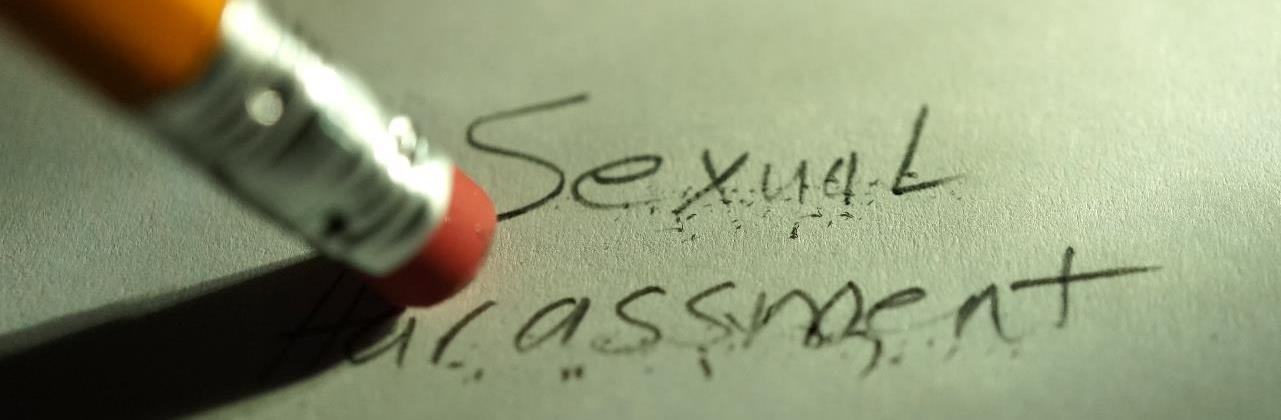 Sexual
Harassment